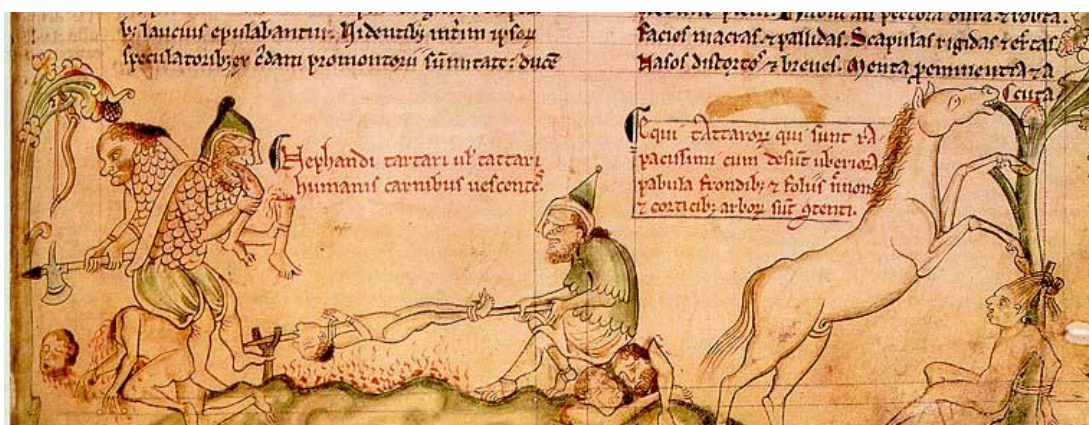 b; laucius epulabantur. Videntib; intim ipsoꝝ
speculatorib; ex promontorii sūmitate: ducē
pectora dura ⁊ robusta.
Facies macras. ⁊ pallidas. Scapulas rigidas ⁊
Nasos distortos ⁊ breues. Menta peminentia ⁊ a
cuta
Nephandi tartari ul' tattari
humanis carnibus uescentes.
Equi tattaroꝝ qui sunt ra
pacissimi cum desūt uberiora
pabula frondib; ⁊ foliis
⁊ corticib; arboꝝ sūt ꝯtenti.